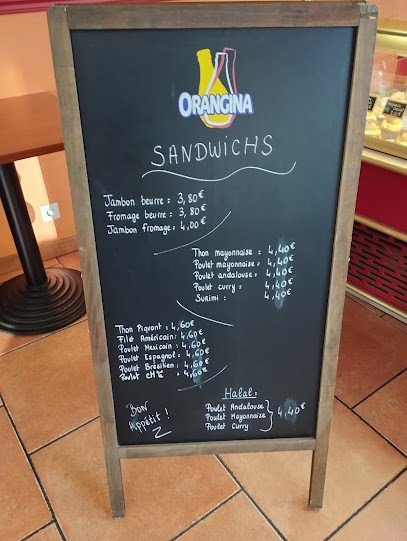 ORANGINA
SANDWICHS
Jambon beurre : 3,80€
Fromage beurre : 3,80€
Jambon fromage : 4,00€
Thon mayonnaise : 4,40€
Poulet mayonnaise : 4,40€
Poulet andalouse : 4,40€
Poulet curry : 4,40€
Surimi : 4,40€
Thon Piquant : 4,60€
Filet Américain : 4,60€
Poulet Mexicain : 4,60€
Poulet Espagnol : 4,60€
Poulet Brésilien : 4,60€
Poulet : 4,60€
Bon
Appétit !
Halal :
Poulet Andalouse
Poulet Mayonnaise } 4,40€
Poulet Curry